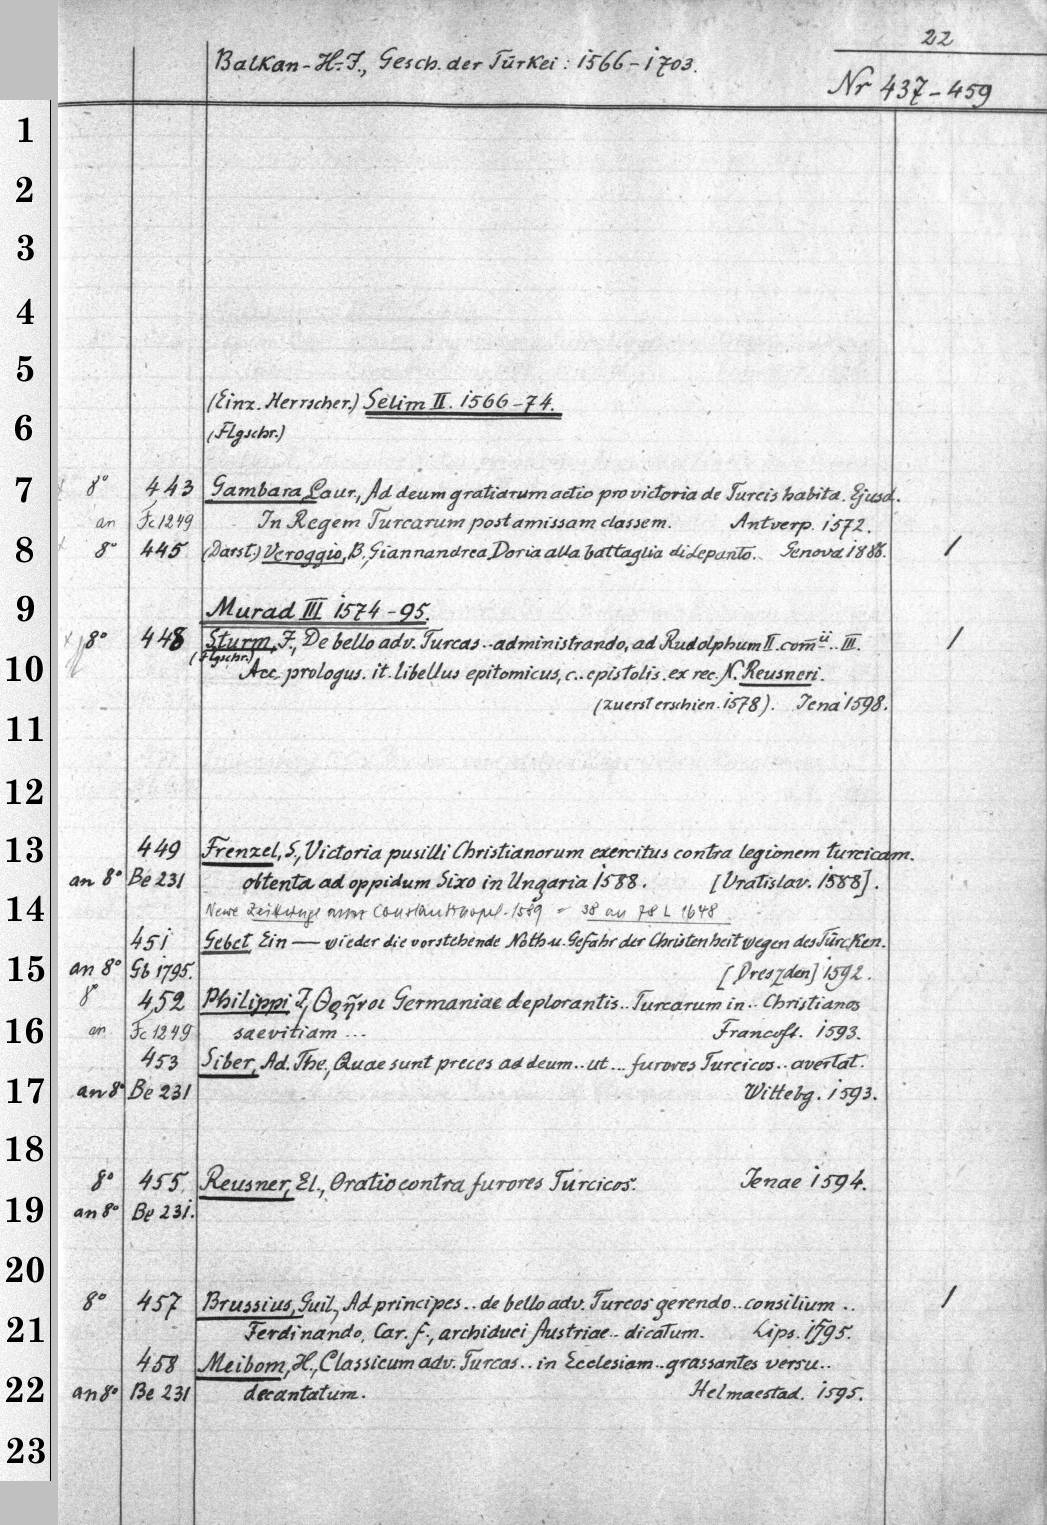 22
Balkan-H-I., Gesch. der Türkei: 1566-1703.
Nr 437-459
1
2
3
4
5
(Einz. Herrscher.) Selim II. 1566-74.
6
(Flgschr.)
7 8° 443 Gambara, Laur., Ad deum gratiarum actio pro victoria de Turcis habita. Ejusd.
an Fc 1249 In Regem Turcarum post amissam classem. Antverp. 1572.
8 8° 445 (Darst.) Veroggio, B., Giannandrea Doria alla battaglia di Lepanto. Genova 1886. 1
9 Murad III 1574-95.
8° 448 Sturm, J., De bello adv. Turcas..administrando, ad Rudolphum II. com̄ii..III. 1
(Flgschr.)
10 Acc. prologus. it. libellus epitomicus, c..epistolis. ex rec. N. Reusneri.
(zuerst erschien. 1578). Jena 1598.
11
12
13 449 Frenzel, S., Victoria pusilli Christianorum exercitus contra legionem turcicam.
an 8° Be 231 obtenta ad oppidum Sixo in Ungaria 1588. [Vratislav. 1588].
14 Newe Zeitunge Constantinopel. 1589 = 38 an 78 L 1648
451 Gebet Ein — wieder die vorstehende Noth u. Gefahr der Christenheit wegen des Türcken.
15 an 8° Gb 1795. [Dreszden] 1592.
8° 452 Philippi J., Θρῆνοι Germaniae deplorantis.. Turcarum in.. Christianos
16 an Fc 1249 saevitiam ... Francoft. 1593.
453 Siber, Ad. The., Quae sunt preces ad deum..ut... furores Turcicos.. avertat.
17 an 8° Be 231 Wittebg. 1593.
18
8° 455 Reusner, El., Oratio contra furores Turcicos. Jenae 1594.
19 an 8° Be 231.
20
8° 457 Brussius, Guil., Ad principes.. de bello adv. Turcos gerendo..consilium.. 1
21 Ferdinando, Car. f., archiduci Austriae.. dicatum. Lips. 1595.
458 Meibom, H., Classicum adv. Turcas.. in Ecclesiam..grassantes versu..
22 an 8° Be 231 decantatum. Helmaestad. 1595.
23